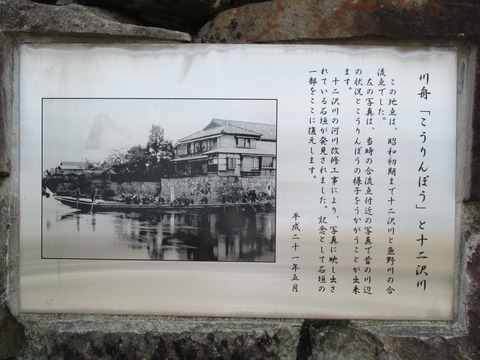 川舟「こうりんぼう」と十二沢川
この地点は、昭和初期まで十二沢川と魚野川の合
流点でした。
左の写真は、当時の合流点付近の写真で昔の川辺
の状況とこうりんぼうの様子をうかがうことが出来
ます。
十二沢川の河川改修工事により、写真に映し出さ
れている石垣が発見されました。記念として石垣の
一部をここに復元します。
平成二十一年五月